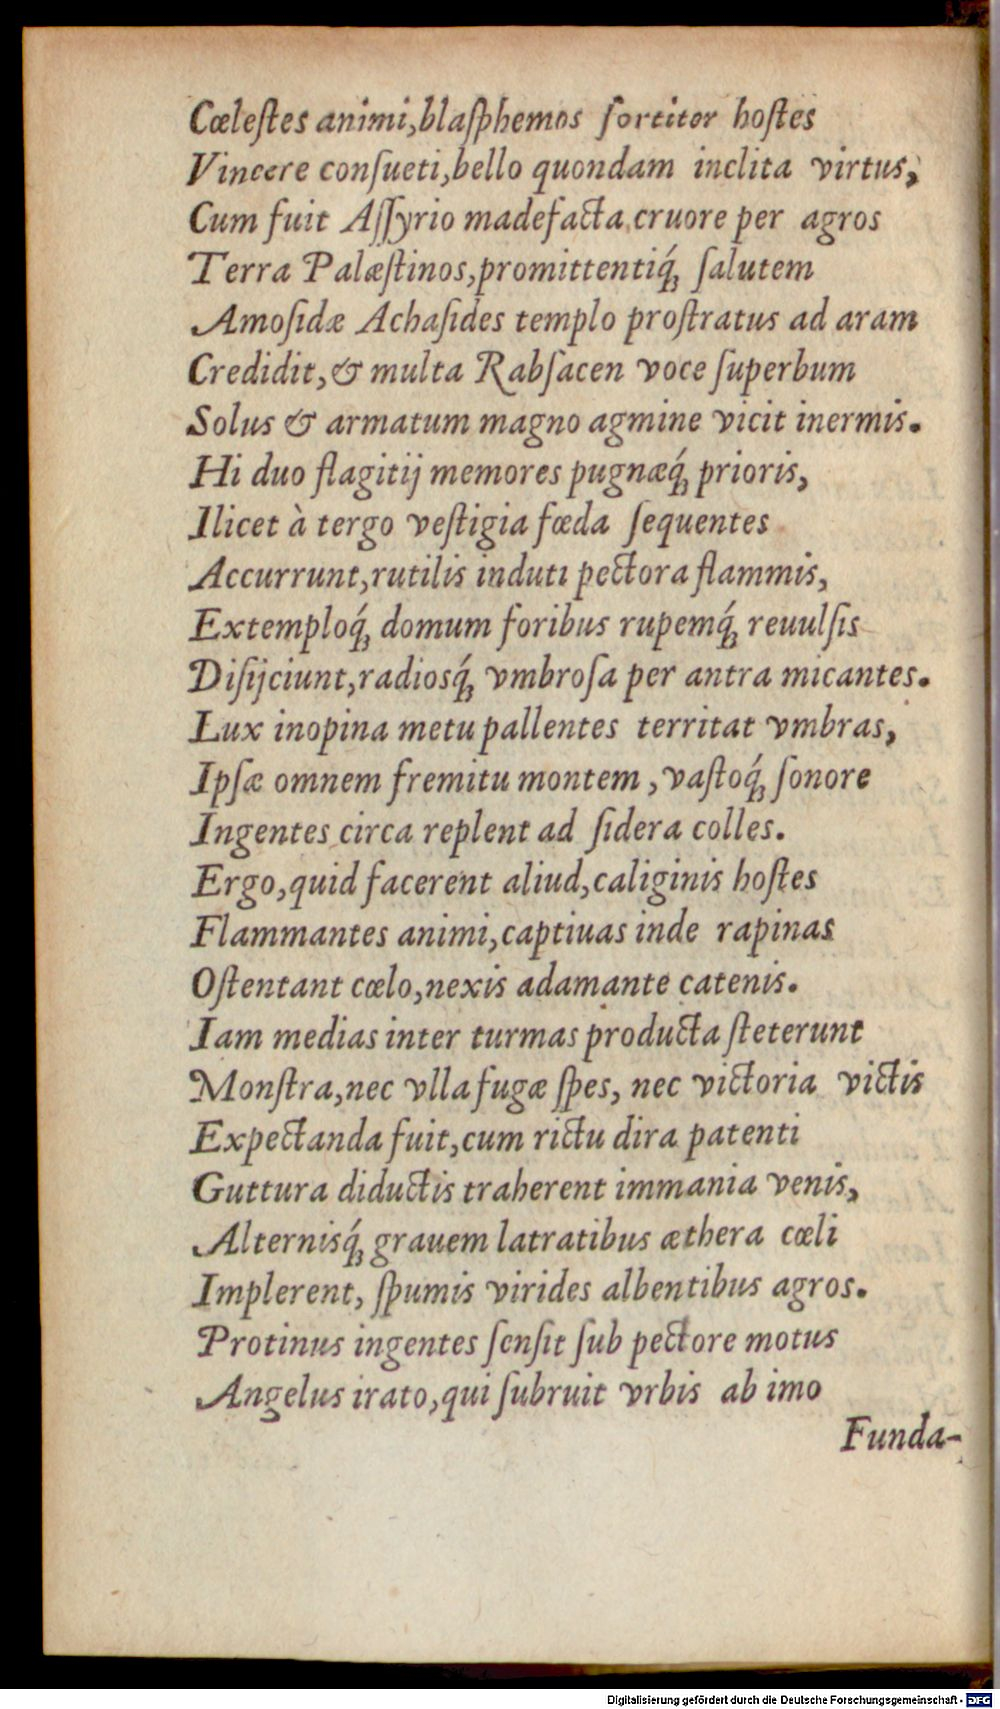 Cœleſtes animi,blaſphemos fortiter hoſtes
Vincere conſueti,bello quondam inclita virtus,
Cum fuit Aſſyrio madefacta cruore per agros
Terra Palæſtinos,promittentiq́ꝫ ſalutem
Amoſidæ Achaſides templo proſtratus ad aram
Credidit,& multa Rabſacen voce ſuperbum
Solus & armatum magno agmine vicit inermis.
Hi duo flagitij memores pugnæq́ꝫ prioris,
Ilicet à tergo veſtigia fœda ſequentes
Accurrunt,rutilis induti pectora flammis,
Extemploq́ꝫ domum foribus rupemq́ꝫ reuulſis
Diſijciunt,radiosq́ꝫ vmbroſa per antra micantes.
Lux inopina metu pallentes territat vmbras,
Ipſæ omnem fremitu montem ,vaſtoq́ꝫ ſonore
Ingentes circa replent ad ſidera colles.
Ergo,quid facerent aliud,caliginis hoſtes
Flammantes animi,captiuas inde rapinas
Oſtentant cœlo,nexis adamante catenis.
Iam medias inter turmas producta ſteterunt
Monſtra,nec vlla fugæ ſpes, nec victoria victis
Expectanda fuit,cum rictu dira patenti
Guttura diductis traherent immania venis,
Alternisq́ꝫ grauem latratibus æthera cœli
Implerent, ſpumis virides albentibus agros.
Protinus ingentes ſenſit ſub pectore motus
Angelus irato,qui ſubruit vrbis ab imo
Funda-
Digitalisierung gefördert durch die Deutsche Forschungsgemeinschaft - DFG